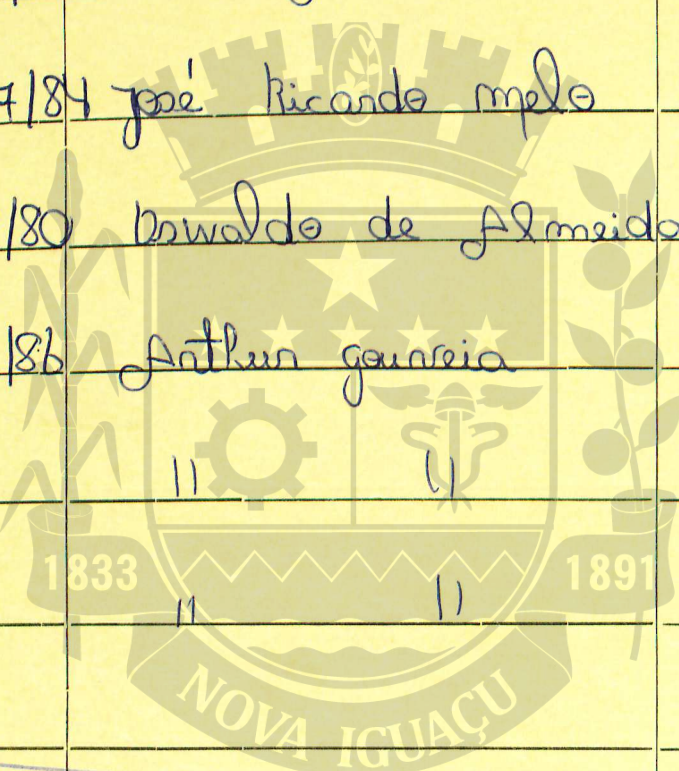 7/84 José Ricardo melo
/80 Oswaldo de Almeida
/86 Arthur gouveia
11 11
11 11
1833 1891
NOVA IGUAÇU